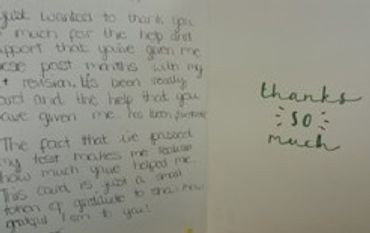 just wanted to thank you
much for the help and
support that you've given me
these past months with my
revision. It's been really
hard and the help that you
have given me has been
The fact that i've passed
my test makes me realise
how much you've helped me.
This card is just a small
token of gratitude to show how
grateful I am to you!
thanks
so
much